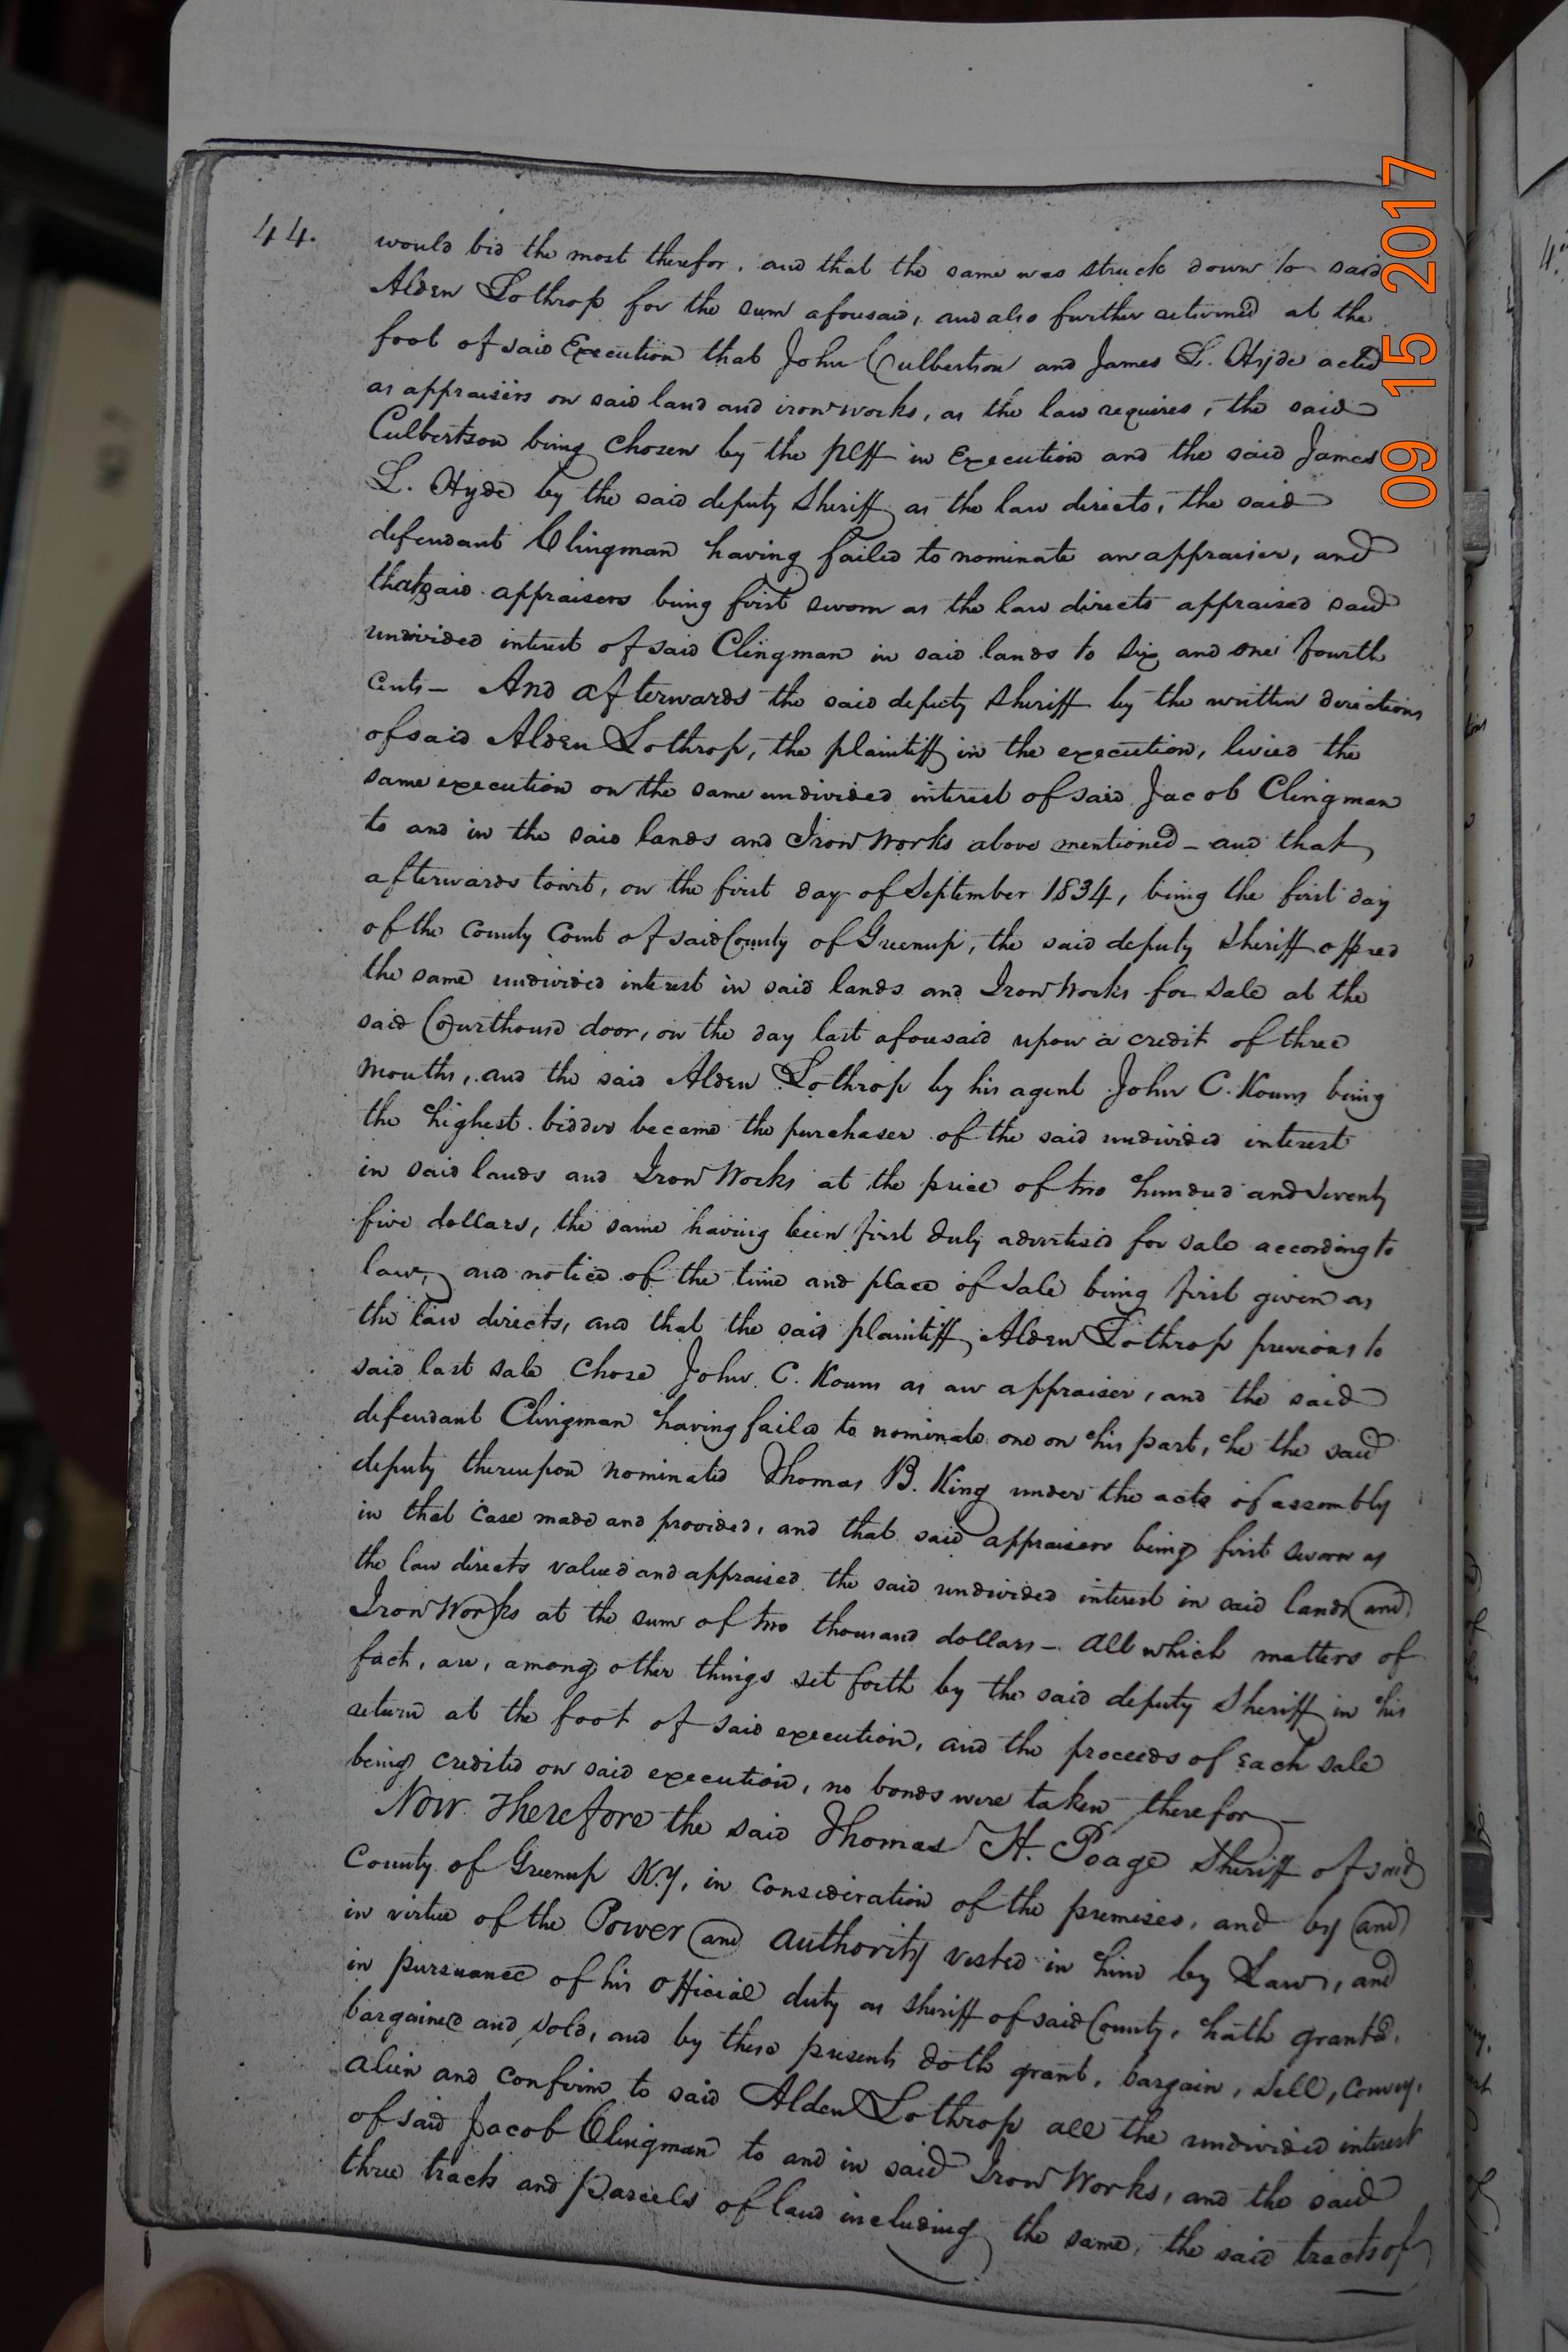 44.
would bid the most therefor, and that the same was struck down to said
Alden Lothrop for the sum aforesaid, and also further returned at the
foot of said Execution that John Culbertson and James L. Hyde acted
as appraisers on said land and iron works, as the law requires, the said
Culbertson being chosen by the Plff in Execution and the said James
L. Hyde by the said deputy Sheriff as the law directs, the said
defendant Clingman having failed to nominate an appraiser, and
that said appraisers being first sworn as the law directs appraised said
undivided interest of said Clingman in said lands to Six and one fourth
cents — And afterwards the said deputy Sheriff by the written directions
of said Alden Lothrop, the plaintiff in the execution, levied the
same execution on the same undivided interest of said Jacob Clingman
to and in the said lands and Iron Works above mentioned — and that
afterwards towit, on the first day of September 1834, being the first day
of the County Court of said County of Greenup, the said deputy Sheriff offred
the same undivided interest in said lands and Iron Works for Sale at the
said Courthouse door, on the day last aforesaid upon a credit of three
months, and the said Alden Lothrop by his agent John C. Kouns being
the highest bidder became the purchaser of the said undivided interest
in said lands and Iron Works at the price of two hundred and Seventy
five dollars, the same having been first duly advertised for sale according to
law, and notice of the time and place of Sale being first given as
the law directs, and that the said plaintiff, Alden Lothrop previous to
said last sale chose John C. Kouns as an appraiser, and the said
defendant Clingman having failed to nominate one on his part, he the said
deputy thereupon nominated Thomas B. King under the acts of assembly
in that case made and provided, and that said appraisers being first sworn as
the law directs valued and appraised the said undivided interest in said lands and
Iron Works at the sum of two thousand dollars — all which matters of
fact, are, among other things set forth by the said deputy Sheriff in his
return at the foot of said execution, and the proceeds of each sale
being credited on said execution, no bonds were taken therefor —
Now Therefore the said Thomas H. Poage Sheriff of said
County of Greenup K.Y, in consideration of the premises, and by and
in virtue of the Power and authority vested in him by Law, and
in pursuance of his official duty as Sheriff of said County, hath granted,
bargained and sold, and by these presents doth grant, bargain, sell, convey,
alien and confirm to said Alden Lothrop all the undivided interest
of said Jacob Clingman to and in said Iron Works, and the said
three tracts and parcels of land including the same, the said tracts of
09 15 2017